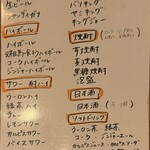 生ビール
シャンディガフ
ハイボール
ハイボール
コークハイボール
ジンジャーハイボール
サワー・酎ハイ
ウーロンハイ
緑茶ハイ
レモンサワー
カルピスサワー
バイスサワー
バリキング
ヤミキング
キングジョー
焼酎
芋焼酎
麦焼酎
黒糖焼酎
泡盛
日本酒
日本酒
ソフトドリンク
ウーロン茶 緑茶
コーク ジンジャーエール
カルピス カルピスソーダ